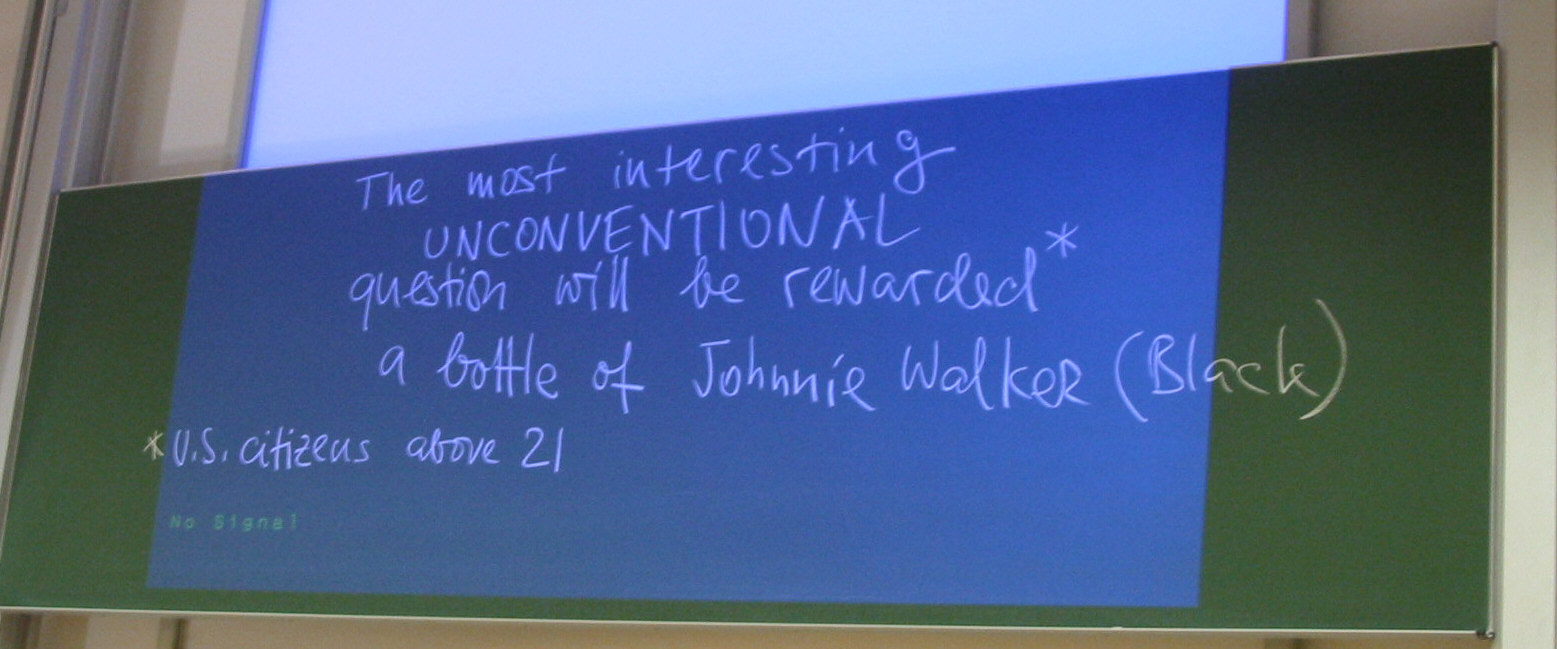 The most interesting
UNCONVENTIONAL
question will be rewarded*
a bottle of Johnnie Walker (Black)
*U.S. citizens above 21
No Signal